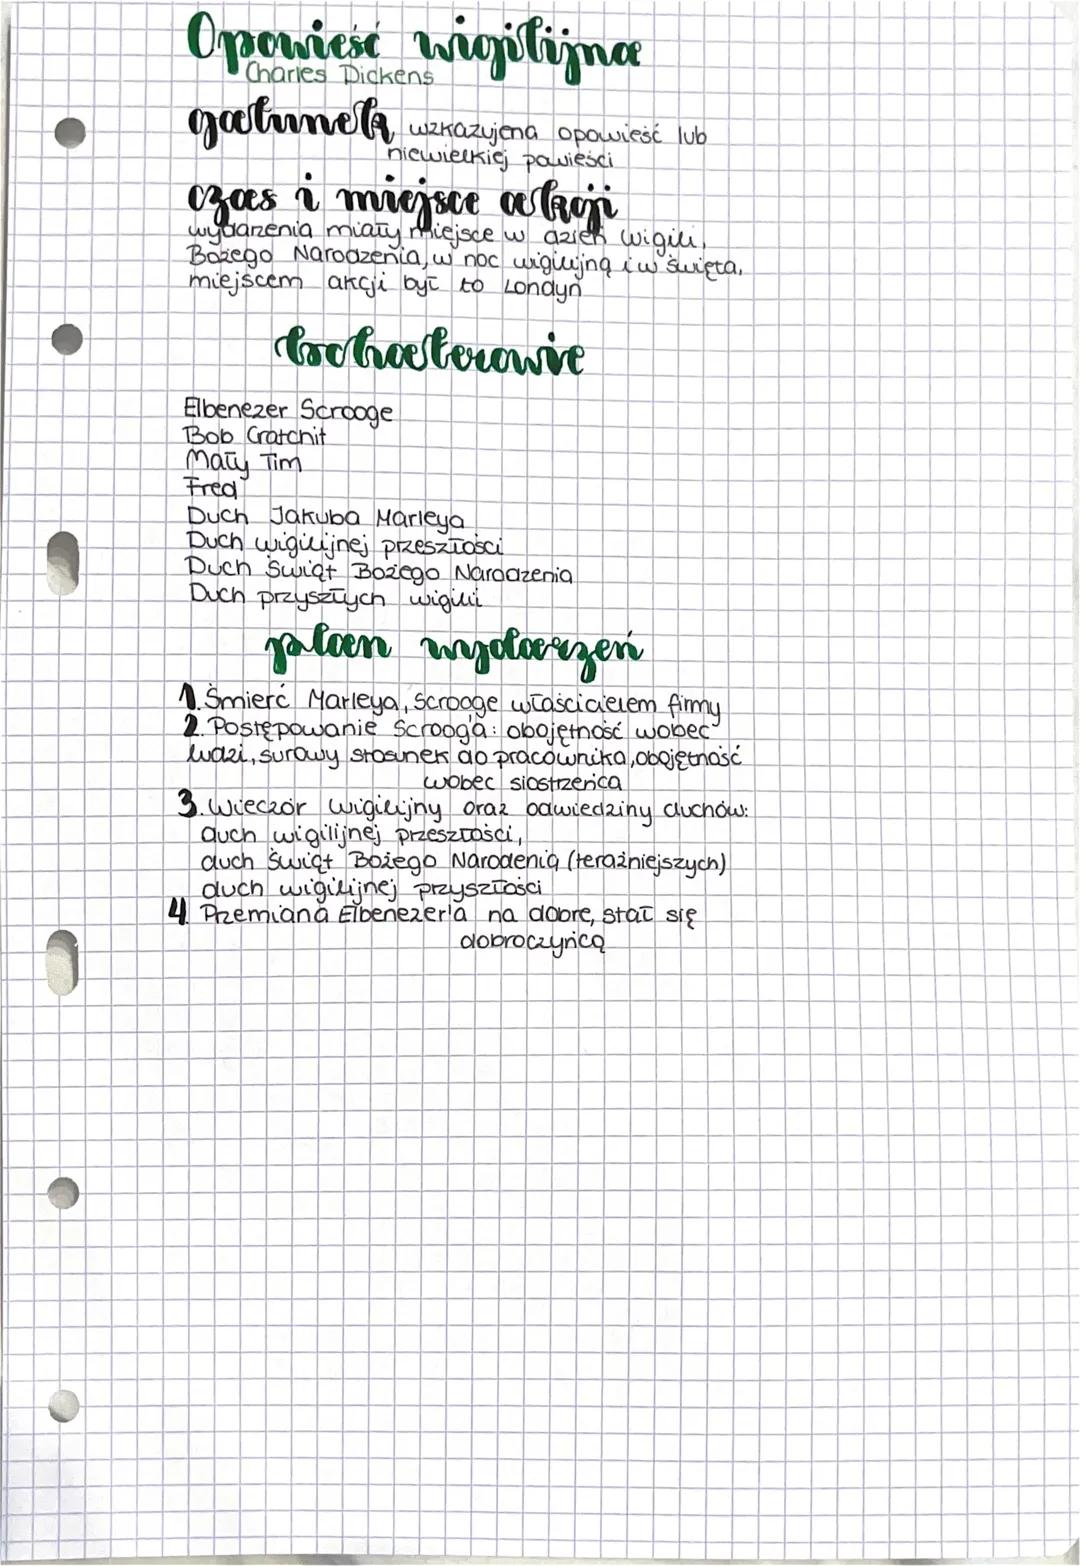 Opowieść wigilijna
Charles Dickens
gatunek wzkazujena opowieść lub
niewielkiej powieści
czas i miejsce akcji
wydarzenia miały miejsce w dzień wigili,
Bożego Narodzenia, w noc wigilijną i w święta,
miejscem akcji był to Londyn
bohaterowie
Elbenezer Scrooge
Bob Cratchit
Mały Tim
Fred
Duch Jakuba Marleya
Duch wigilijnej przeszłości
Duch Świąt Bożego Narodzenia
Duch przyszłych wigilii
plan wydarzeń
1. Śmierć Marleya, Scrooge właścicielem firmy
2. Postępowanie Scrooga: obojętność wobec
ludzi, surowy stosunek do pracownika, obojętność
wobec siostrzeńca
3. Wieczór wigilijny oraz odwiedziny duchów:
duch wigilijnej przeszłości,
duch Świąt Bożego Narodenia (teraźniejszych)
duch wigilijnej przyszłości
4. Przemiana Elbenezer'a na dobre, stał się
dobroczyńcą